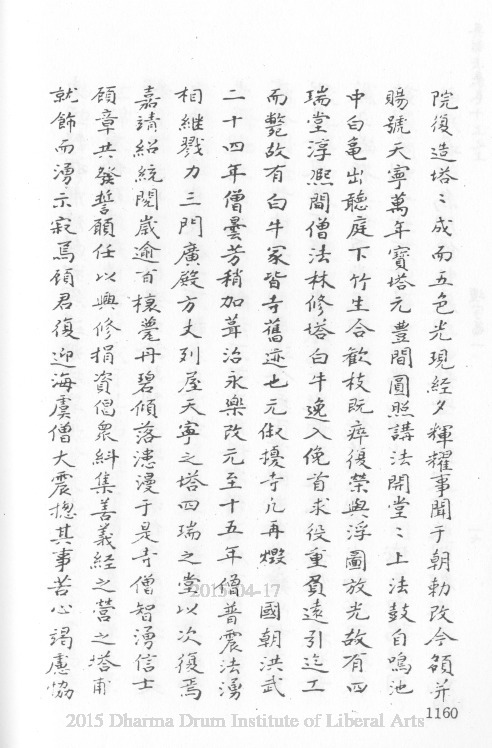 院復造塔〻成而五色光現経夕輝耀事聞于朝勅改今額并
賜號天寧萬年寶塔元豊間圓照講法開堂〻上法鼓自鳴池
中白亀出聽庭下竹生合歡枝既瘁復榮與浮圖放光故有四
瑞堂淳熈間僧法林修塔白牛逸入俛首求役重負遠引迄工
而斃故有白牛冢皆寺舊迹也元俶擾寺凡再燬　國朝洪武
二十四年僧曇芳稍加葺治永樂改元至十五年僧普震法湧
相継戮力三門廣殿方丈列屋天寧之塔四瑞之堂以次復焉
嘉靖紹統閱歲逾百榱甍丹碧傾落漶漫于是寺僧智湧信士
顧章共發誓願任以興修捐資倡衆糾集善義経之營之塔甫
就飾而湧示寂焉顧君復迎海虞僧大震摠其事苦心竭慮恊
1160
2015-04-17
2015 Dharma Drum Institute of Liberal Arts